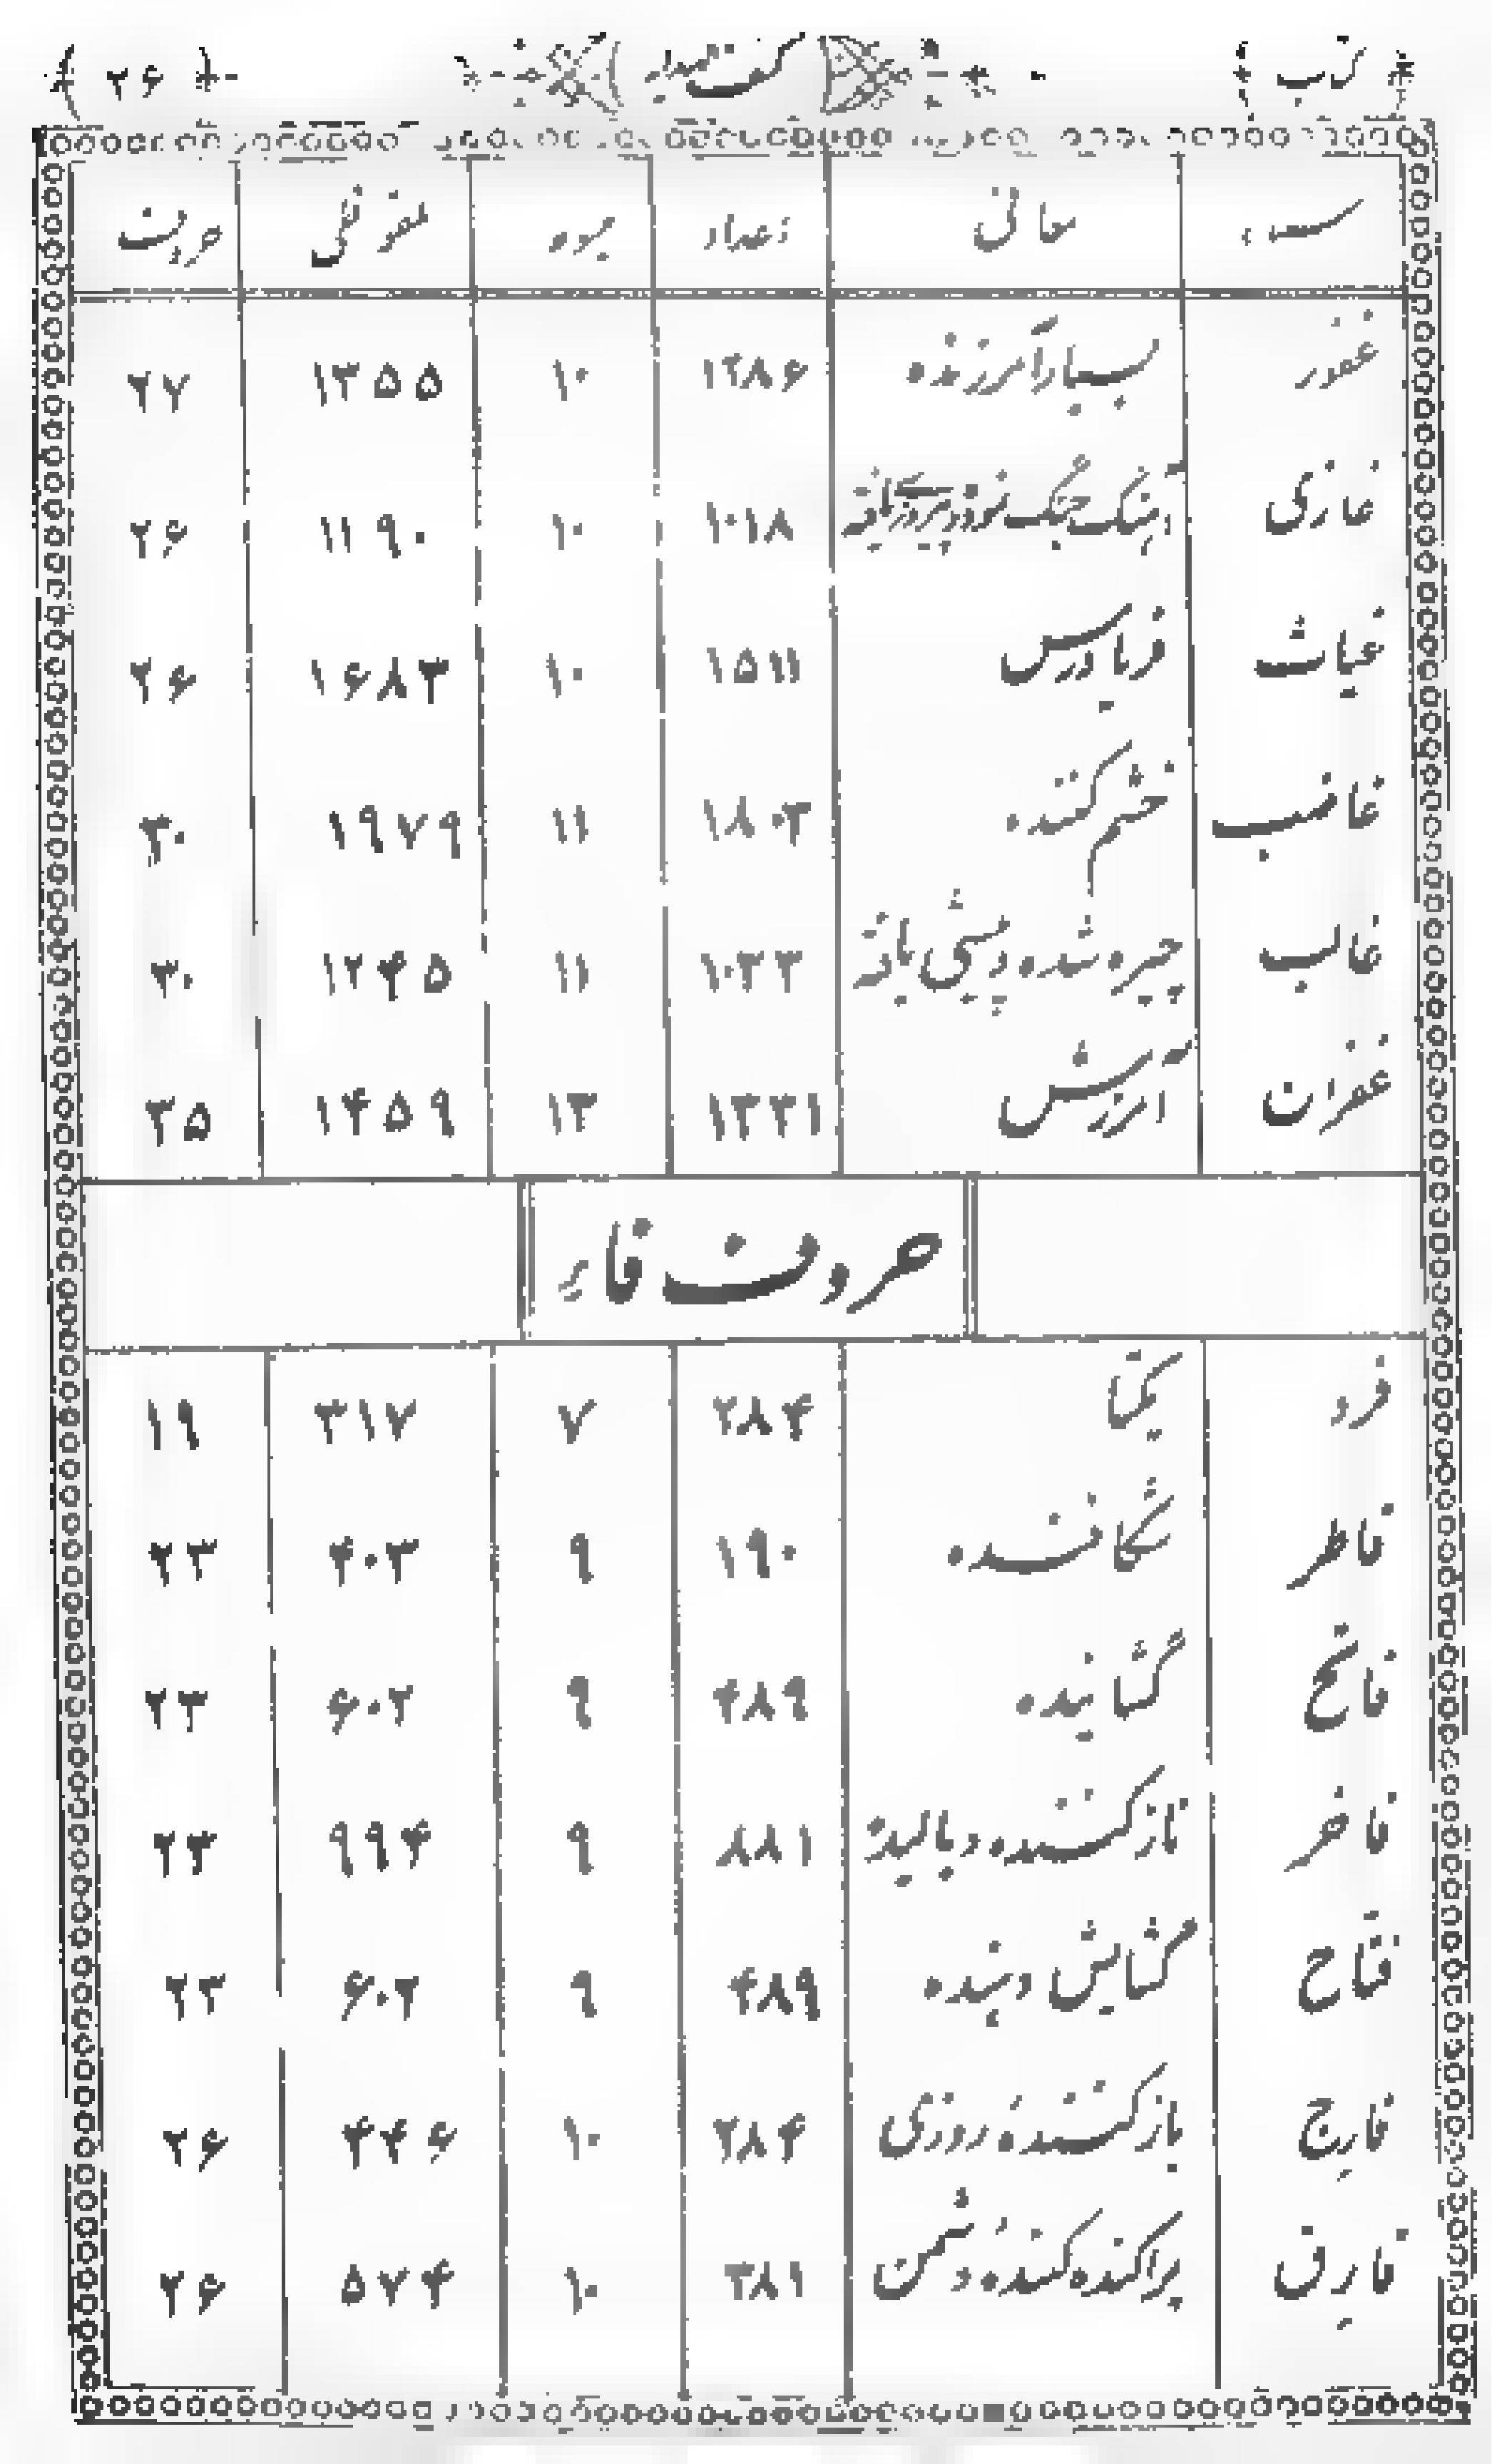 کتاب کشف ۲۶
اسماء معانی اعداد میوه ملفوظی حروف
غفور بسیار آمرزنده ۱۲۸۶ ۱۰ ۱۳۵۵ ۲۷
غازی آهنگ جنگ نموده و پیروزی یافته ۱۰۱۸ ۱۰ ۱۱۹۰ ۲۶
غیاث فریادرس ۱۵۱۱ ۱۰ ۱۶۸۳ ۲۶
غاضب خشم کننده ۱۸۰۳ ۱۱ ۱۹۷۹ ۳۰
غالب چیره شده و پیشی یافته ۱۰۳۳ ۱۱ ۱۲۴۵ ۳۰
غفران آمرزش ۱۳۳۱ ۱۳ ۱۴۵۹ ۳۵
حروف فاء
فرد یکتا ۲۸۴ ۷ ۳۱۷ ۱۹
فاطر شکافنده ۱۹۰ ۹ ۴۰۳ ۲۳
فاتح گشاینده ۴۸۹ ۹ ۶۰۲ ۲۳
فاخر نازکننده و بالیده ۸۸۱ ۹ ۹۹۴ ۲۳
فتاح گشایش دهنده ۴۸۹ ۹ ۶۰۲ ۲۳
فارج بازکننده روزی ۲۸۴ ۱۰ ۴۴۶ ۲۶
فارق پراکنده کننده دشمن ۳۸۱ ۱۰ ۵۷۴ ۲۶